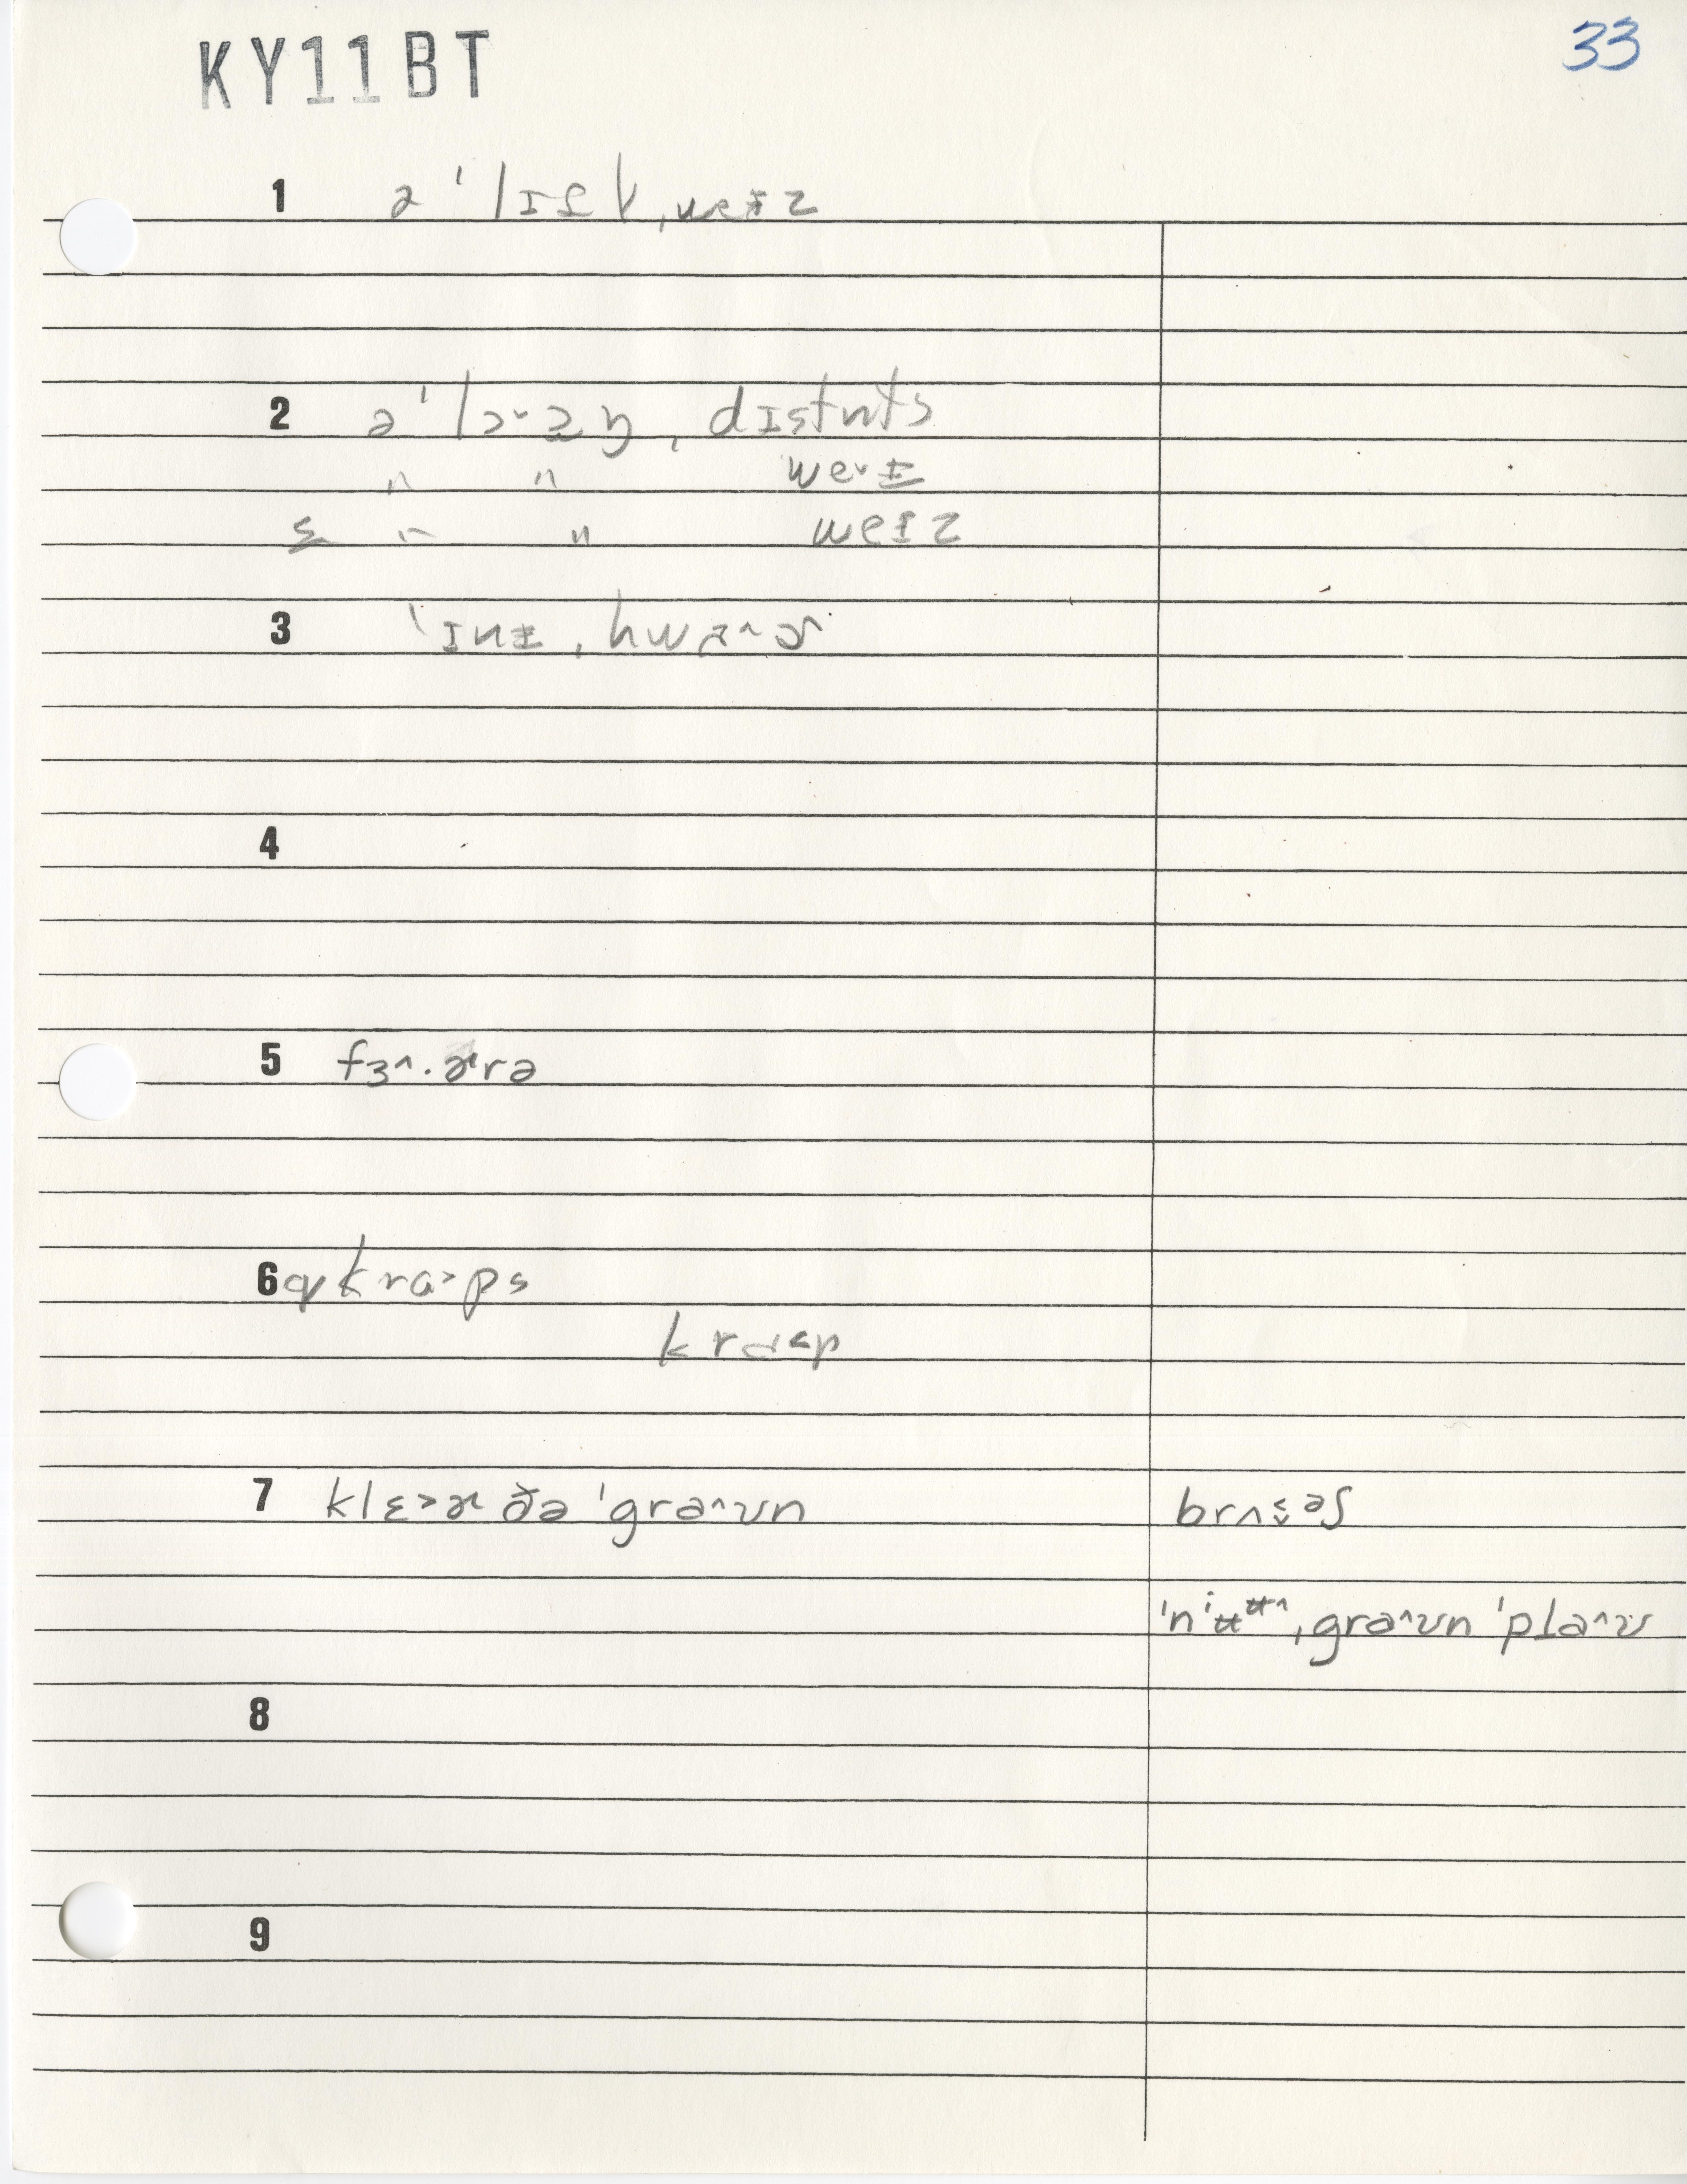 KY11BT
33
1 ə ˈlɪɛl ˌweɪz
2 ə ˈlɔ˞ɔŋ ˌdɪstn̩ts
" " we˞ɪ
" " weɪz
3 ˈɪnɪ ˌhwæ^ɚ
4
5 fɜ^·ɚrə
6 kra˃ps
krɑ˂p
7 klɛ˃ɚ ðə ˈgra^ʊn brʌ əʃ
ˌgra^ʊn ˈpla^ʊ
8
9